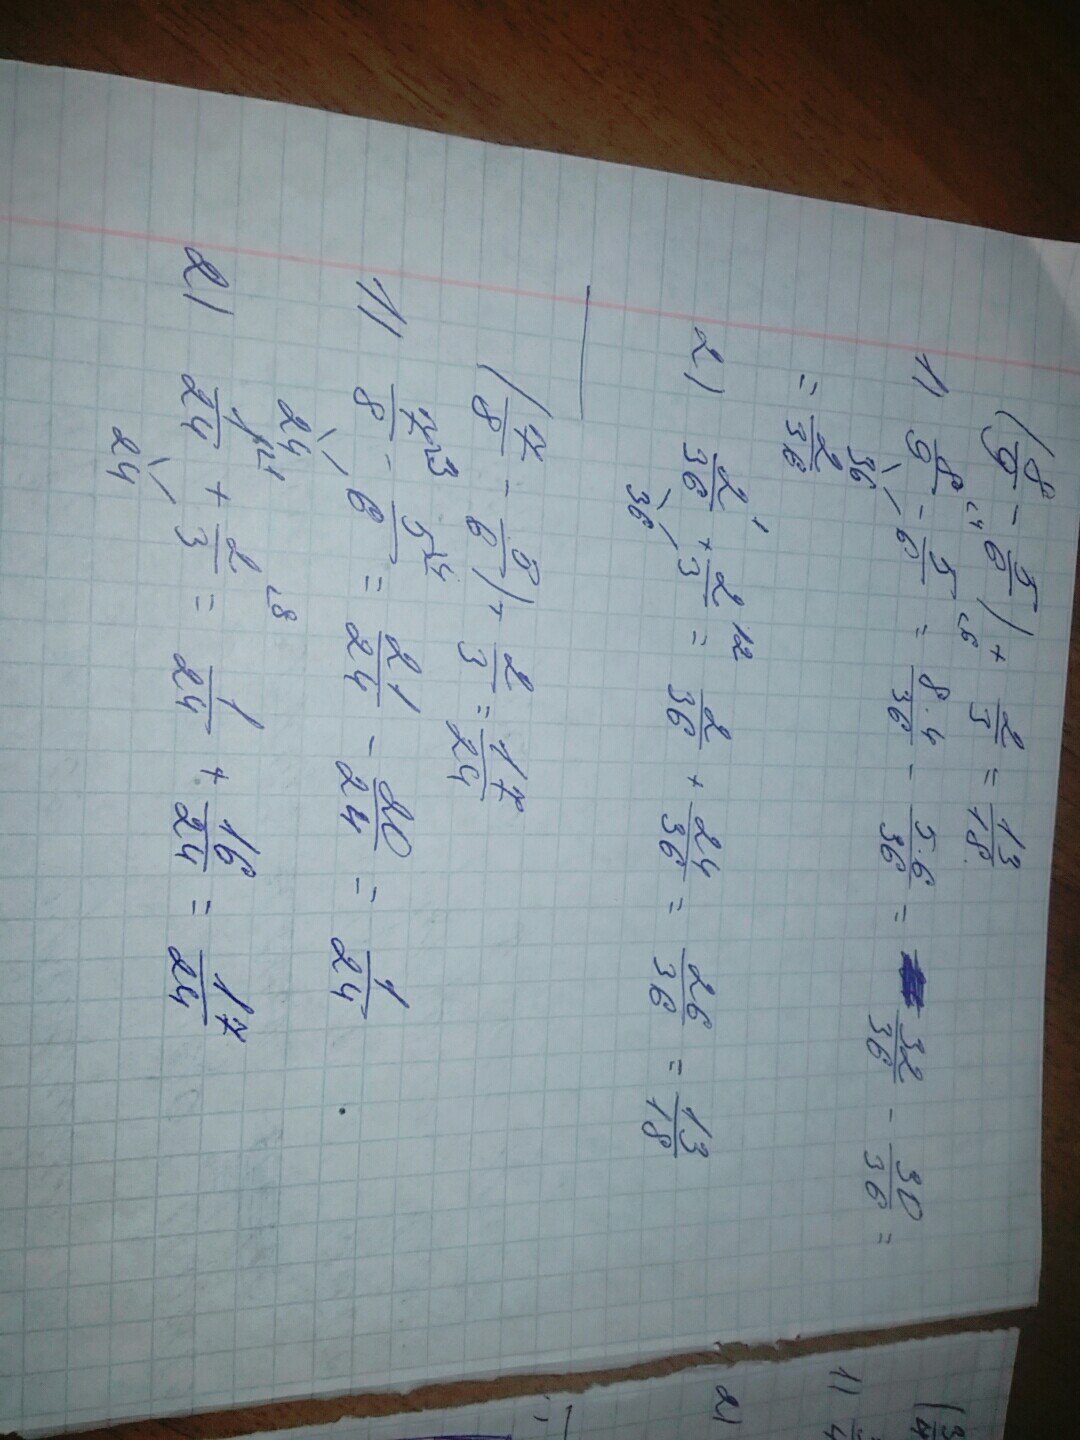 (8/9 - 5/6) + 2/3 = 13/18
1) 8/9 - 5/6 = 8·4/36 - 5·6/36 = 32/36 - 30/36 =
36
= 2/36
2) 2/36 + 2/3 = 2/36 + 24/36 = 26/36 = 13/18
36
(7/8 - 5/6) + 2/3 = 17/24
1) 7/8 - 5/6 = 21/24 - 20/24 = 1/24
24
2) 1/24 + 2/3 = 1/24 + 16/24 = 17/24
24
1)
2)